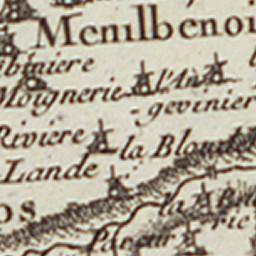 Menilbenoi
biniere
Moignerie
l'An
gevinier
Riviere
la Blou
Lande
os
la B
rie